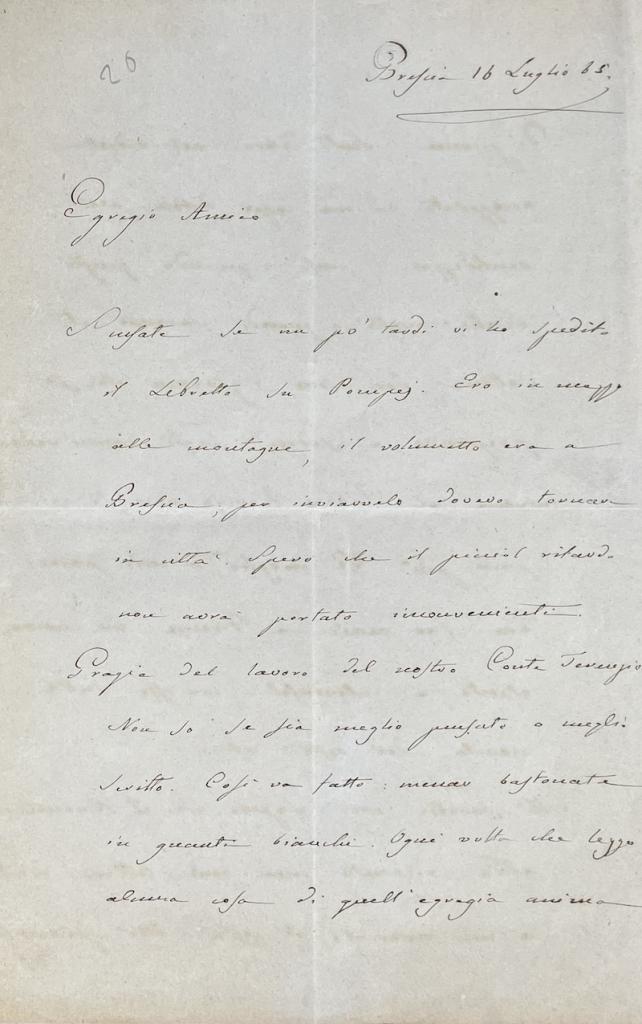 26
Brescia 16 Luglio 65.
Egregio Amico
Scusate se un po' tardi vi ho spedito
il Libretto su Pompej. Ero in mezzo
alle montagne, il volumetto era a
Brescia; per inviarvelo dovevo tornar
in città. Spero che il piccol ritardo
non avrà portato inconvenienti.
Grazie del lavoro del nostro Conte Terenzio
Non so se sia meglio pensato o meglio
scritto. Così va fatto: menar bastonate
in guanti bianchi. Ogni volta che leggo
alcuna cosa di quell' egregia anima